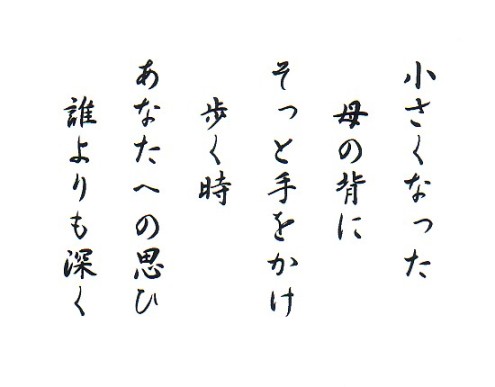 小さくなった
母の背に
そっと手をかけ
歩く時
あなたへの思ひ
誰よりも深く